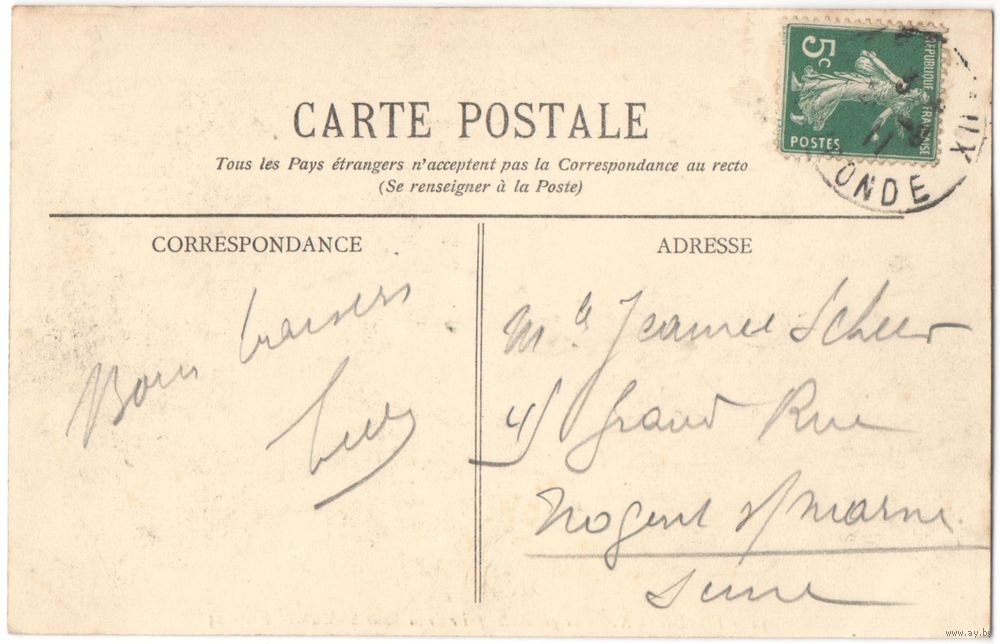 CARTE POSTALE
Tous les Pays étrangers n'acceptent pas la Correspondance au recto
(Se renseigner à la Poste)
5c
REPUBLIQUE FRANÇAISE
POSTES
ONDE
UX
CORRESPONDANCE
Bons baisers
Lucy
ADRESSE
Mlle Jeanne Scheer
45 Grand Rue
Nogent s/ marne
Seine
www.ay.by